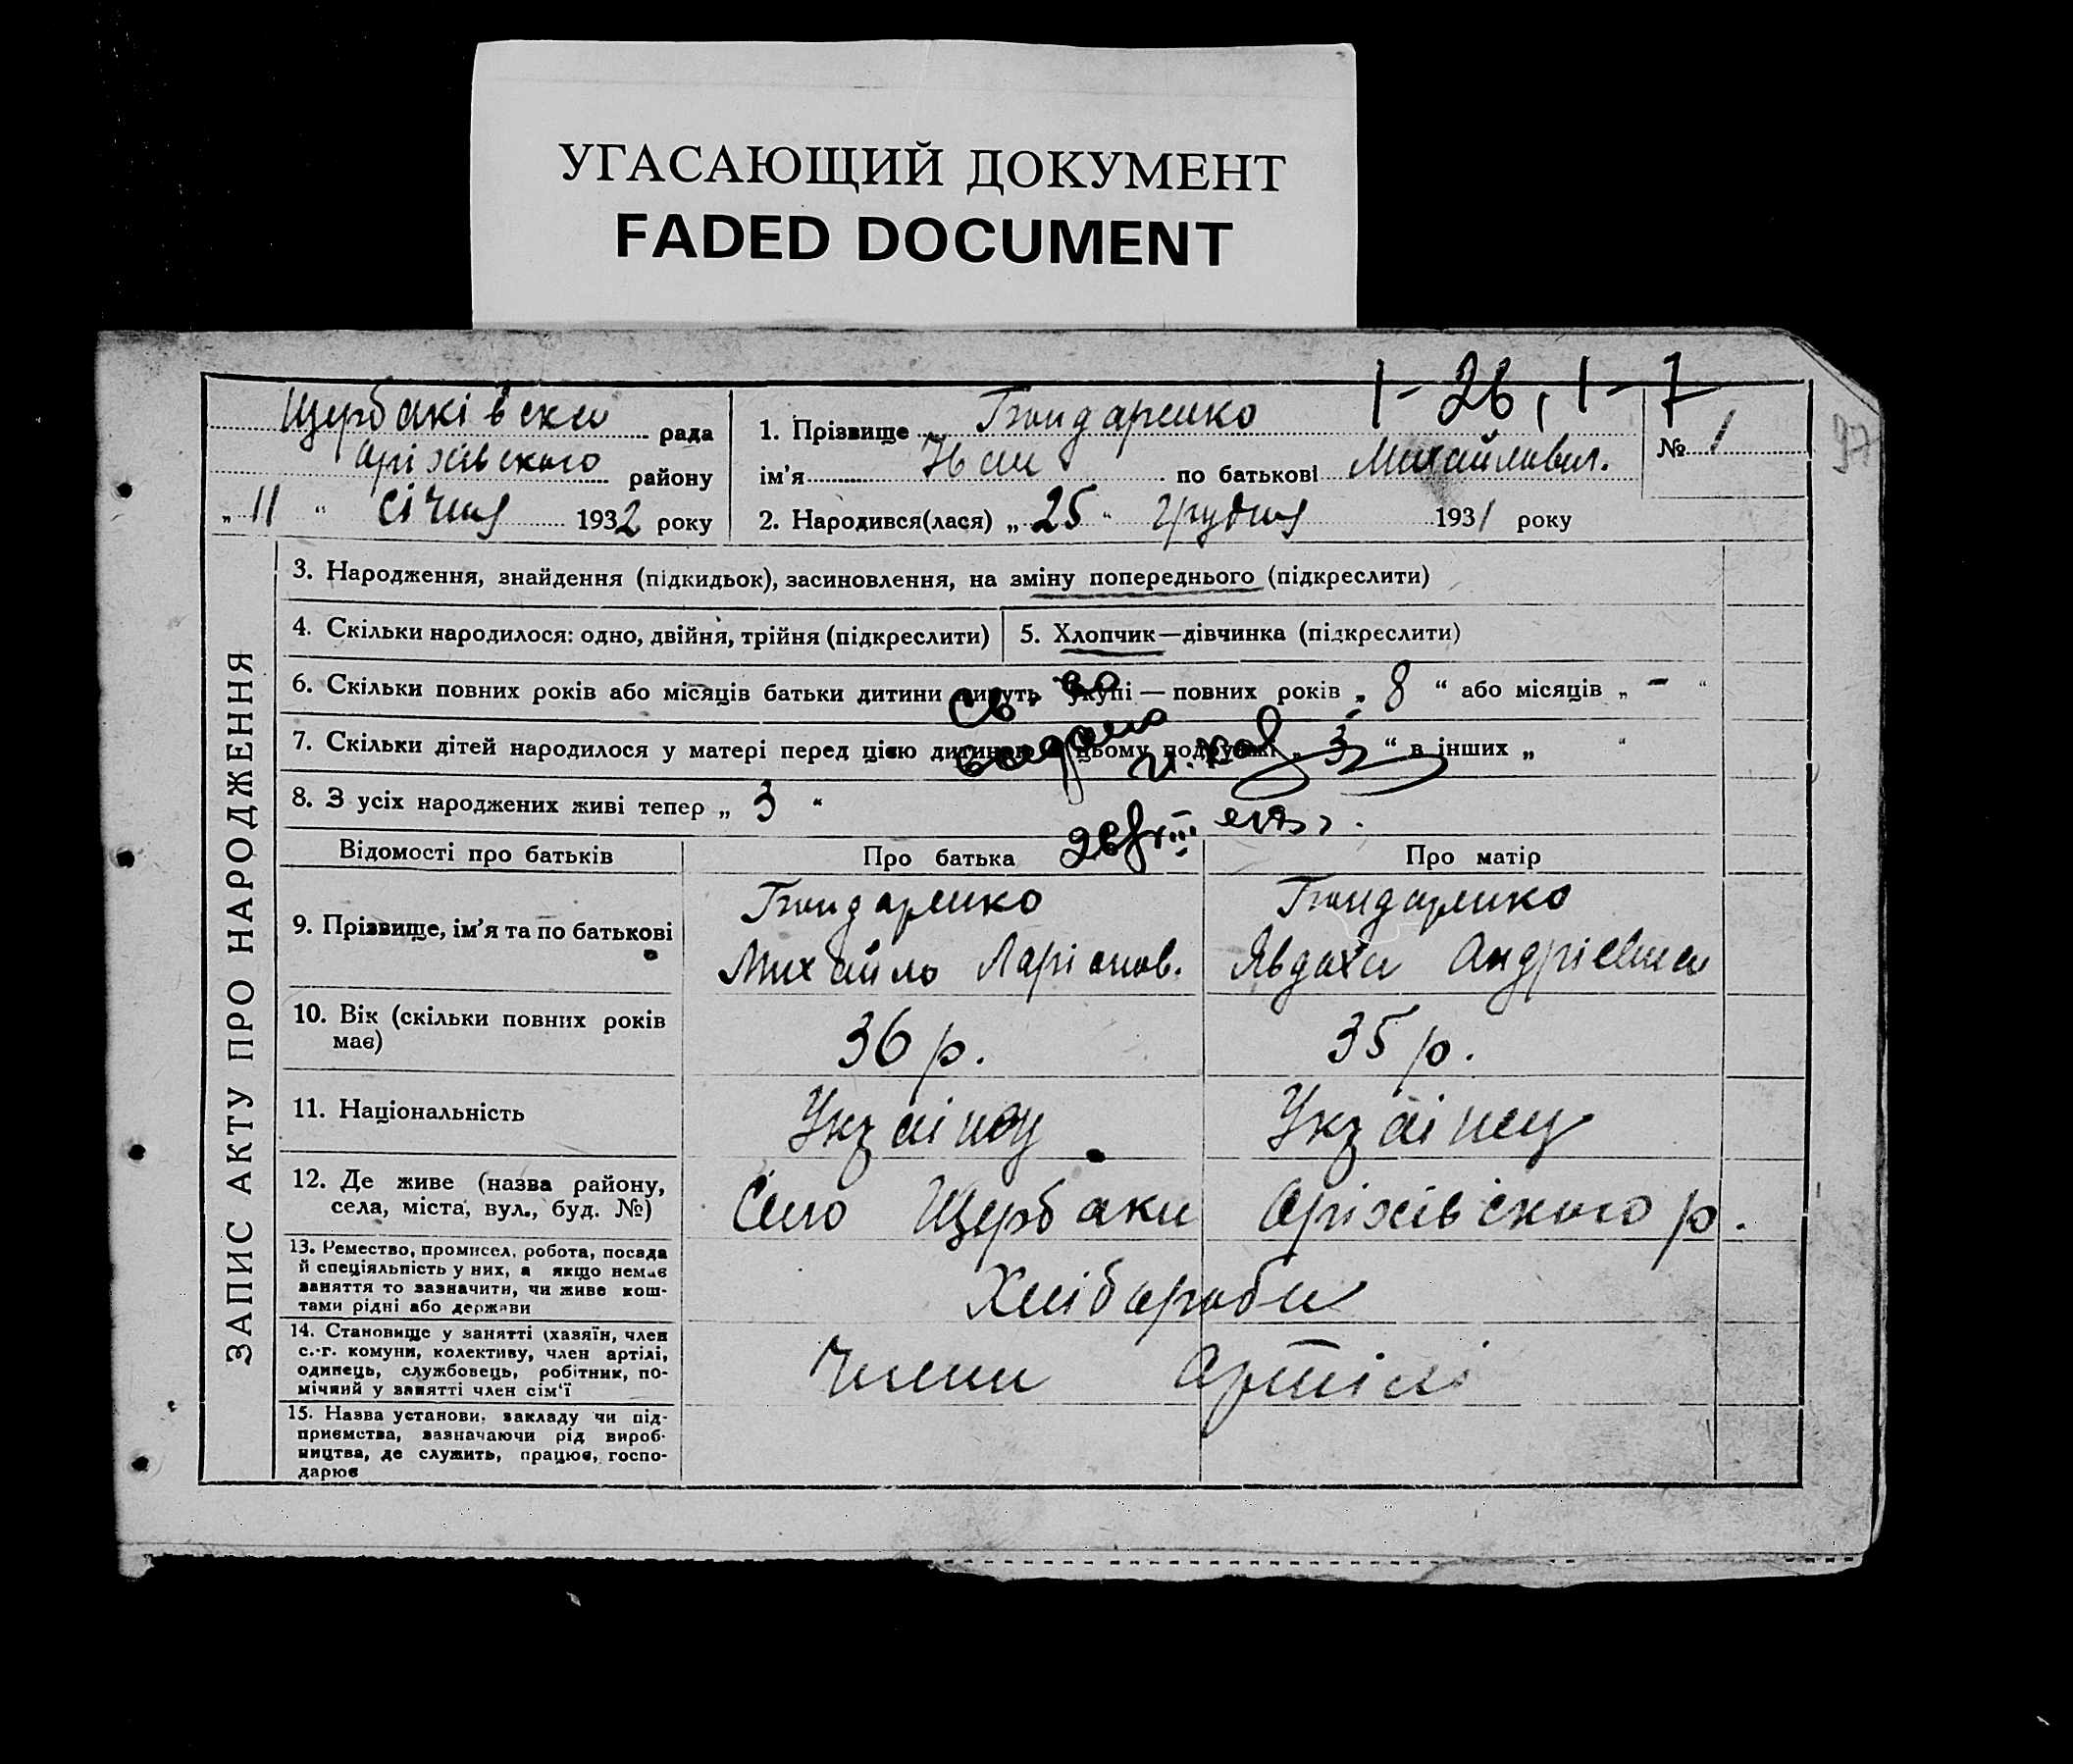 УГАСАЮЩИЙ ДОКУМЕНТ
FADED DOCUMENT
1-26, 1-7
97
Щербаківська рада
Оріхівського району
„ 11 “ січня 1932 року
1. Прізвище Бондаренко
ім'я Іван по батькові Михайлович.
№ 1
2. Народився(лася) „ 25 “ грудня 1931 року
ЗАПИС АКТУ ПРО НАРОДЖЕННЯ
3. Народження, знайдення (підкидьок), засиновлення, на зміну попереднього (підкреслити)
4. Скільки народилося: одно, двійня, трійня (підкреслити)
5. Хлопчик—дівчинка (підкреслити)
6. Скільки повних років або місяців батьки дитини живуть укупі — повних років „ 8 “ або місяців „ - “
7. Скільки дітей народилося у матері перед цією дитиною в цьому подружжі „ 3 “ в інших „ “
8. З усіх народжених живі тепер „ 3 “
Св. во
Відомості про батьків
Про батька
Про матір
9. Прізвище, ім'я та по батькові
Бондаренко
Михайло Ларіонов.
Бондаренко
Явдоха Андріевна
10. Вік (скільки повних років
має)
36 р.
35 р.
11. Національність
Українец
Українец
12. Де живе (назва району,
села, міста, вул., буд. №)
Село Щербаки Оріхівського р.
13. Ремество, промисел, робота, посада
й спеціяльність у них, а якщо немає
заняття то зазначити, чи живе кош-
тами рідні або держави
Хлібороби
14. Становище у занятті (хазяїн, член
с.-г. комуни, колективу, член артілі,
одинець, службовець, робітник, по-
мічний у занятті член сім'ї
Члени Артілі
15. Назва установи, закладу чи під-
приємства, зазначаючи рід вироб-
ництва, де служить, працює, госпо-
дарює